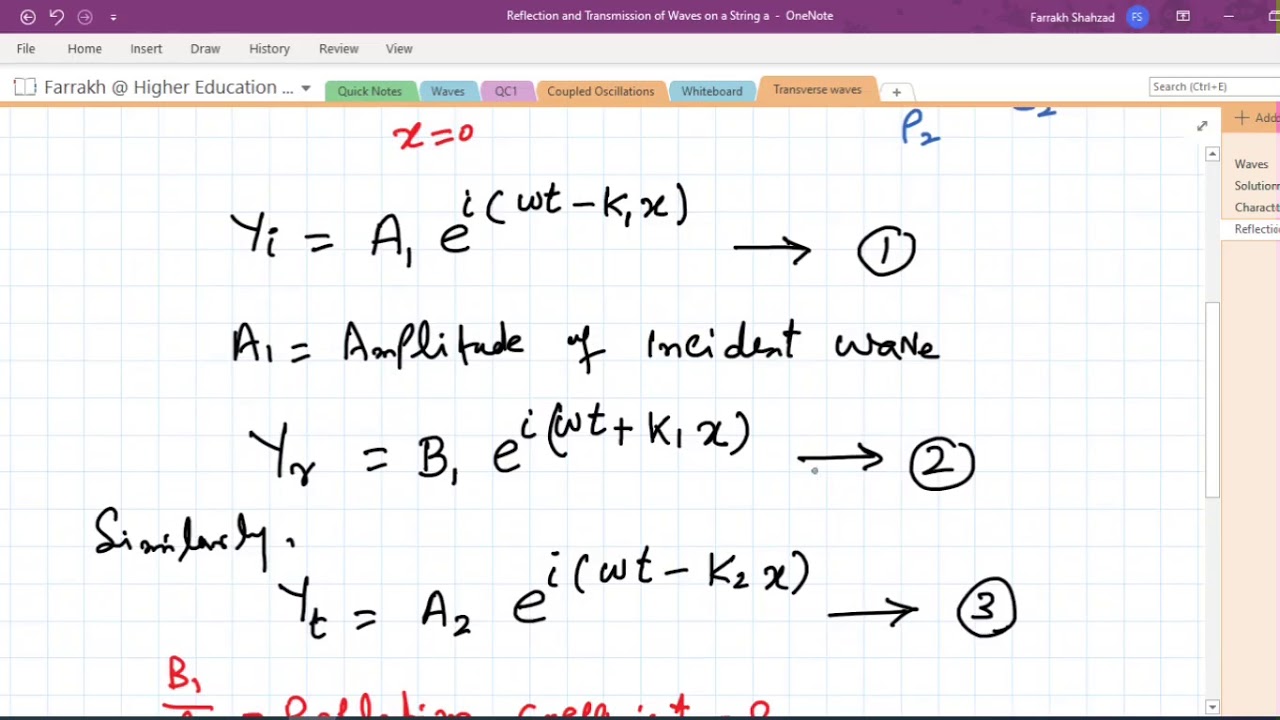 Reflection and Transmission of Waves on a String a - OneNote
Farrakh Shahzad FS
File Home Insert Draw History Review View
Farrakh @ Higher Education ...
Quick Notes Waves QC1 Coupled Oscillations Whiteboard Transverse waves +
Search (Ctrl+E)
x=0
ρ₂
Yᵢ = A₁ e^i(ωt - K₁x) → ①
A₁ = Amplitude of incident wave
Yᵣ = B₁ e^i(ωt + K₁x) → ②
Similarly,
Yₜ = A₂ e^i(ωt - K₂x) → ③
B₁
Waves
Reflectio